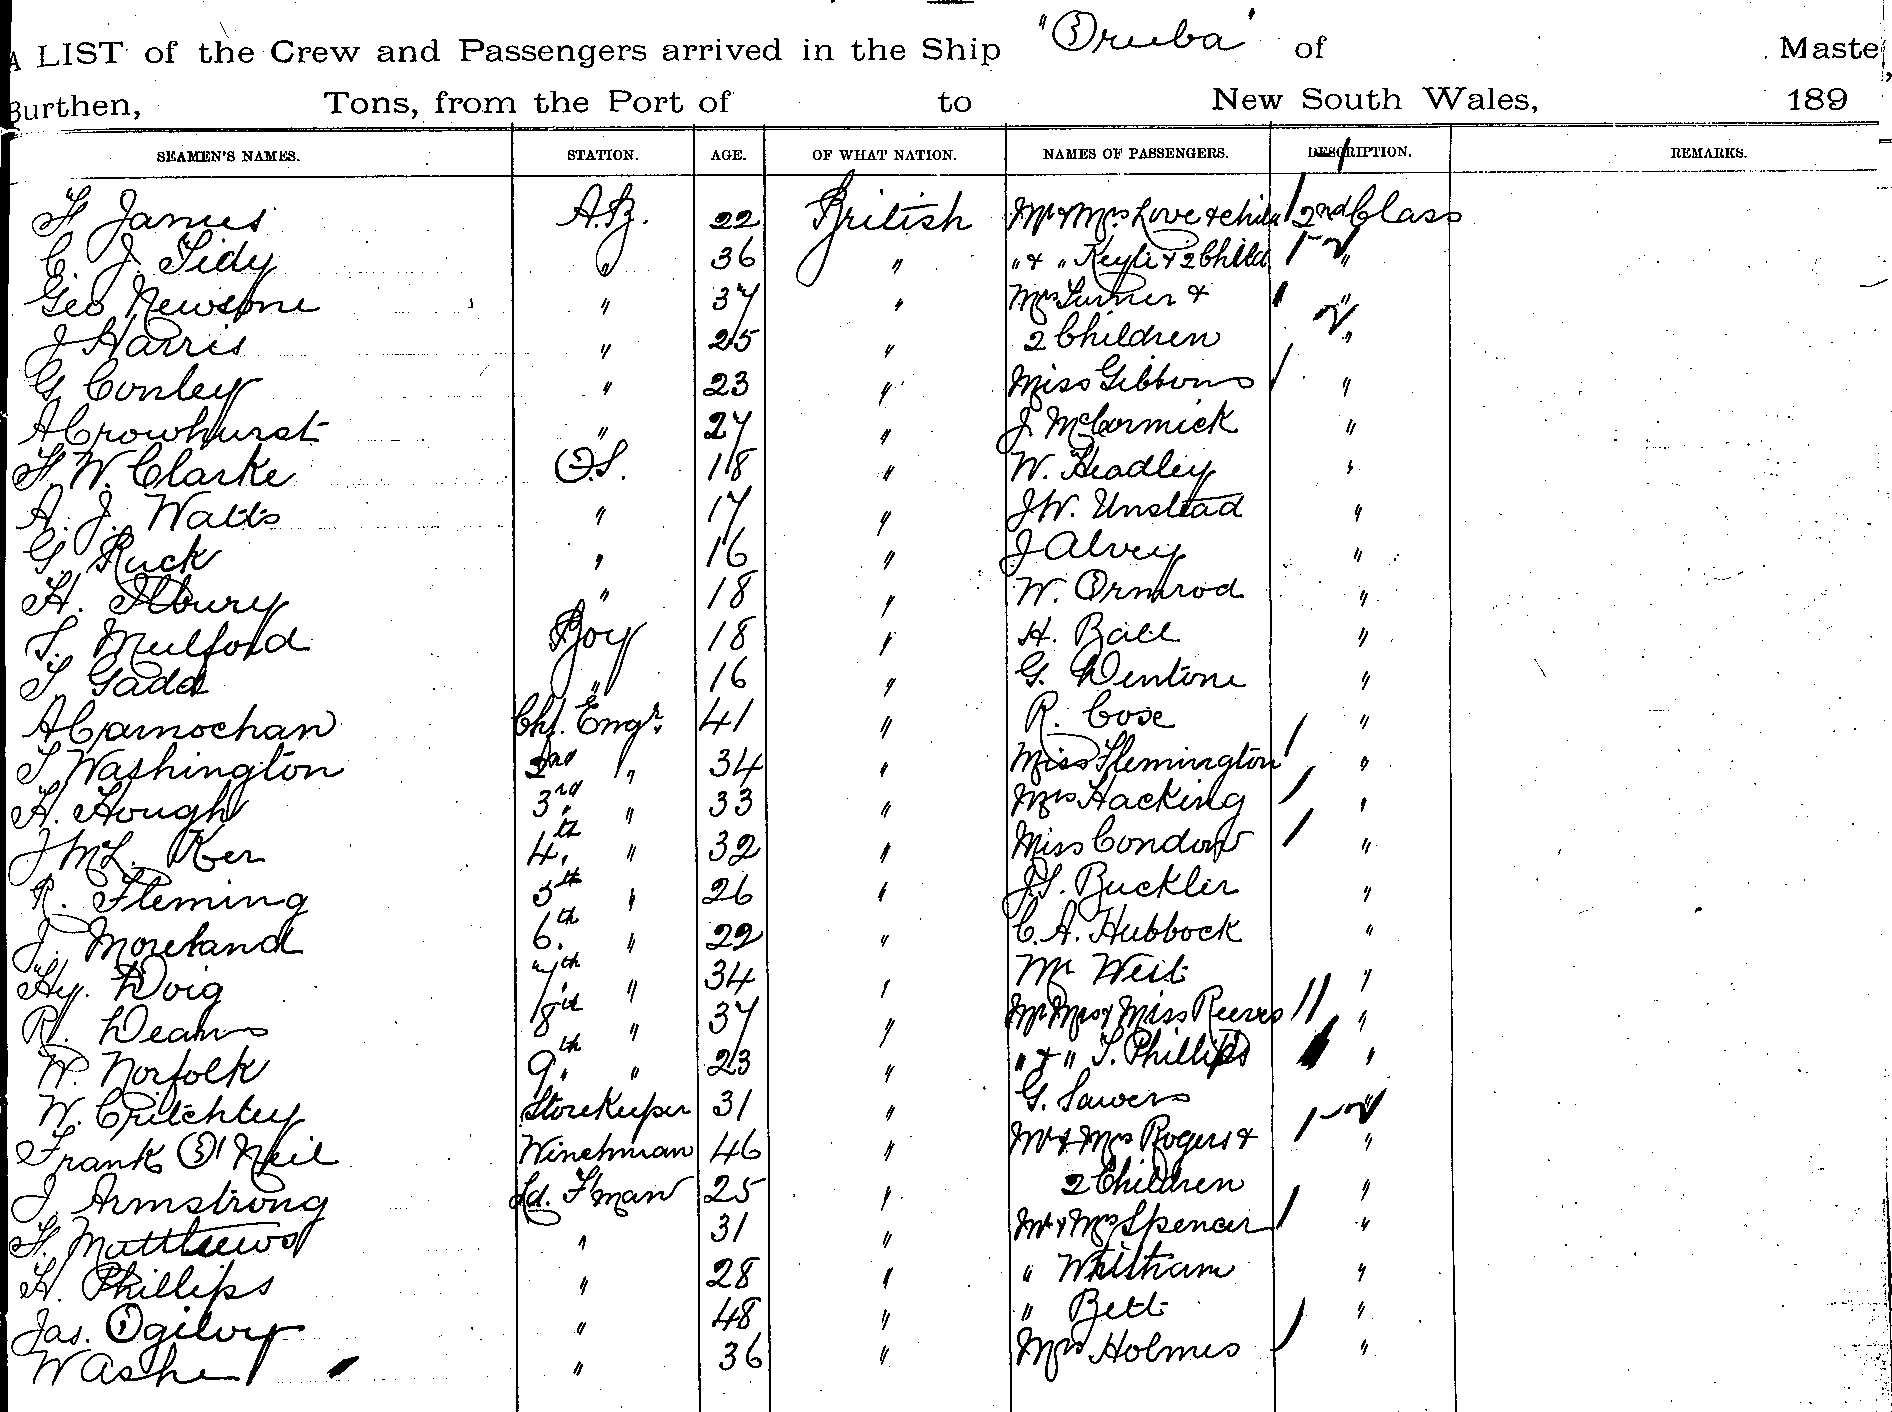 A LIST of the Crew and Passengers arrived in the Ship "Oruba" of Maste
Burthen, Tons, from the Port of to New South Wales, 189
SEAMEN'S NAMES. STATION. AGE. OF WHAT NATION. NAMES OF PASSENGERS. DESCRIPTION. REMARKS.
F James A.B. 22 British Mr & Mrs Love & child 2nd Class
C. J. Tidy " 36 " " & " Keyli & 2 Child "
Geo Newsome " 37 " Mrs Turner & "
J Harris " 25 " 2 Children "
G Conley " 23 " Miss Gibbons "
A Crowhurst " 27 " J McCormick "
F. W. Clarke O.S. 18 " W. Headley "
A. J. Watts " 17 " J W. Unstead "
G. Ruck " 16 " J Alvey "
H. Ilbury " 18 " W. Ormrod "
T. Mulford Boy 18 " H. Ball "
T. Gadd " 16 " G. Dentone "
A Carnochan Chf. Engr. 41 " R. Cose "
T Washington 2nd " 34 " Miss Flemington "
H. Hough 3rd " 33 " Mrs Hacking "
J McL. Ker 4th " 32 " Miss Condow "
R. Fleming 5th " 26 " J. S. Buckler "
J. Moreland 6th " 22 " C. A. Hubbock "
Hy. Doig 7th " 34 " Mr West "
R. Deans 8th " 37 " Mr Mrs & Miss Reeves "
W. Norfolk 9th " 23 " " & " T. Phillips "
W. Critchley Storekeeper 31 " G. Sawers
Frank O'Neil Winchman 46 " Mr & Mrs Rogers & "
J. Armstrong Ld. F'man 25 " 2 Children "
F. Matthews " 31 " Mr & Mrs Spencer "
H. Phillips " 28 " " Whitham "
Jas. Ogilvy " 48 " " Bett "
W Asher " 36 " Mrs Holmes "